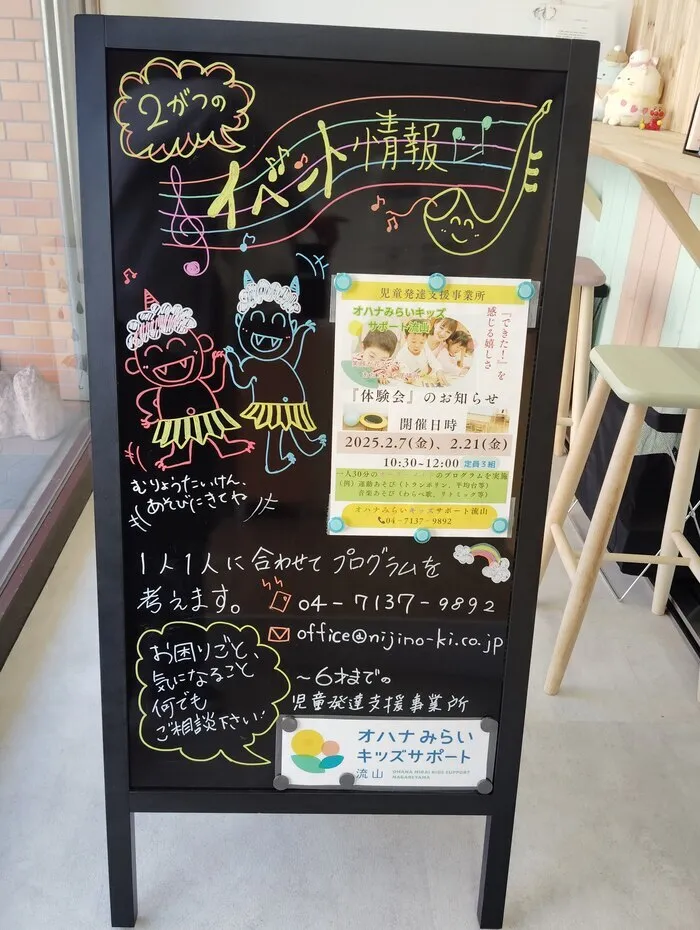 2がつの
イベント情報
児童発達支援事業所
オハナみらいキッズ
サポート流山
『できた!』を
感じる嬉しさ
『体験会』のお知らせ
開催日時
2025.2.7(金)、2.21(金)
10:30~12:00 定員3組
一人30分の
のプログラムを実施
(例)運動あそび(トランポリン、平均台等)
音楽あそび(わらべ歌、リトミック等)
オハナみらいキッズサポート流山
04-7137-9892
むりょうたいけん、
あそびにきてね
1人1人に合わせてプログラムを
考えます。
04-7137-9892
office@nijino-ki.co.jp
お困りごと、
気になること
何でも
ご相談下さい
~6才までの
児童発達支援事業所
オハナみらい
キッズサポート
流山 OHANA MIRAI KIDS SUPPORT
NAGAREYAMA